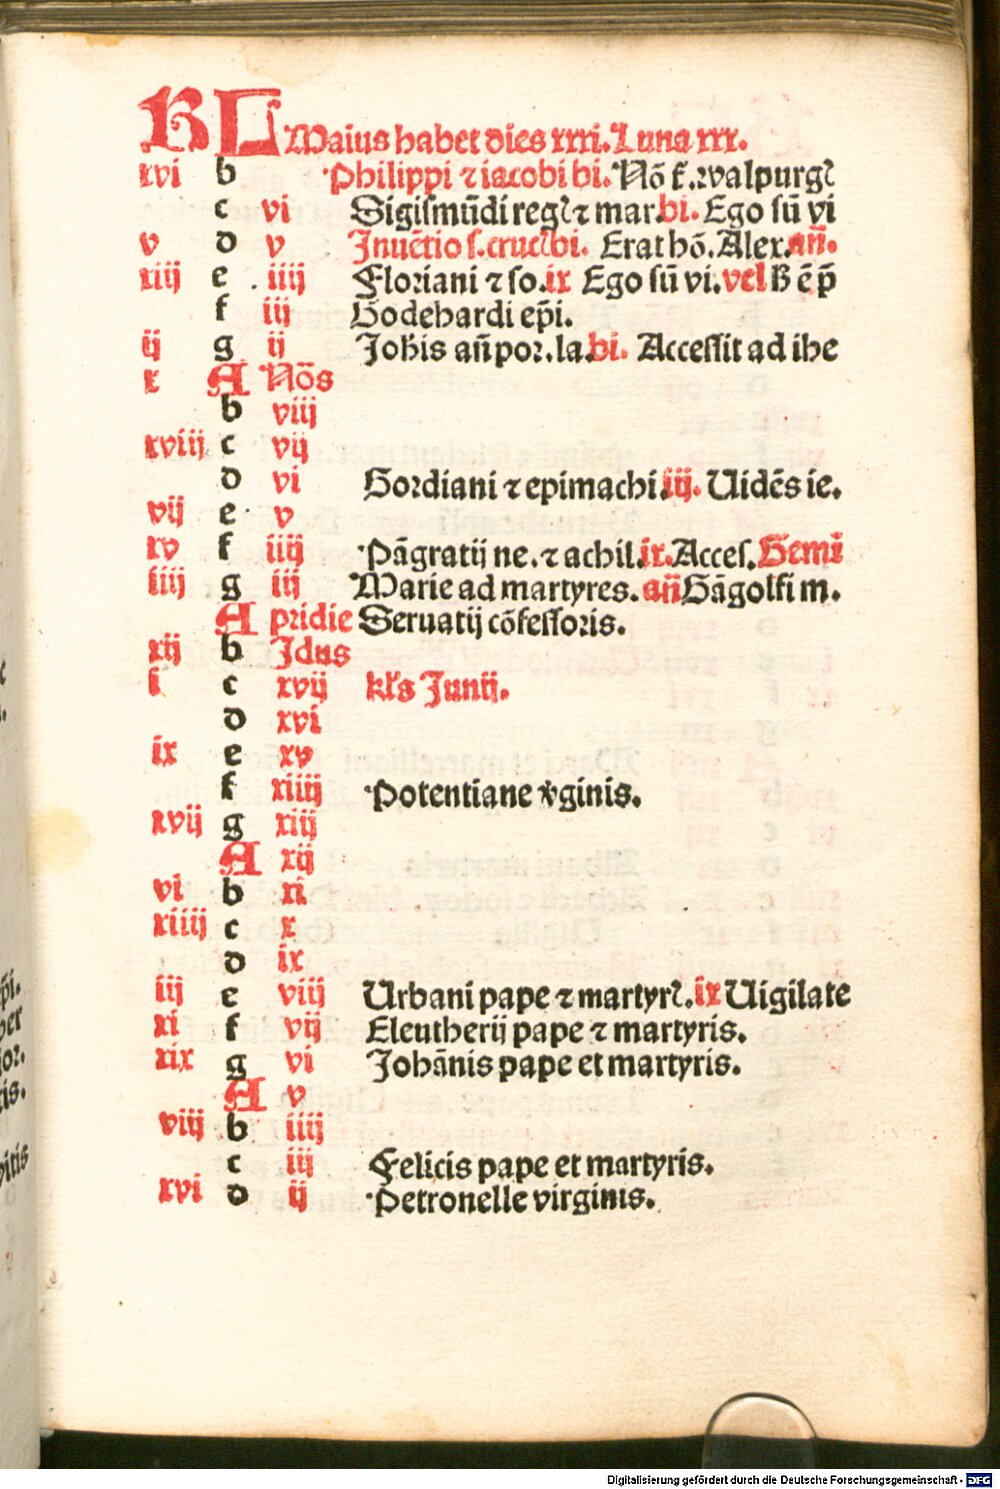 KL Maius habet dies xxxi. Luna xxx.
xvi b Philippi ⁊ iacobi bi. Nō f. walpurgꝭ
c vi Sigismūdi regꝭ ⁊ mar. bi. Ego sū vi
v d v Inuētio s. crucꝭ bi. Erat hō. Alex. añ.
xiij e iiij Floriani ⁊ so. ix Ego sū vi. vel B ē p̄
f iij Godehardi ep̄i.
ij g ij Joh̄is añ por. la. bi. Accessit ad ihe
x A Nōs
b viij
xviij c vij
d vi Gordiani ⁊ epimachi. iij. Uidēs ie.
vij e v
xv f iiij Pāgratij ne. ⁊ achil. ix. Acces. Gemī
iiij g iij Marie ad martyres. añ Gāgolfi m.
A pridie Seruatij cōfessoris.
xij b Idus
i c xvij kl̄s Junij.
d xvi
ix e xv
f xiiij Potentiane v̓ginis.
xvij g xiij
A xij
vi b xi
xiiij c x
d ix
iij e viij Urbani pape ⁊ martyrꝭ. ix Uigilate
xi f vij Eleutherij pape ⁊ martyris.
xix g vi Johānis pape et martyris.
A v
viij b iiij
c iij Felicis pape et martyris.
xvi d ij Petronelle virginis.
p̄i.
per
ior.
ris.
vitis
Digitalisierung gefördert durch die Deutsche Forschungsgemeinschaft - DFG